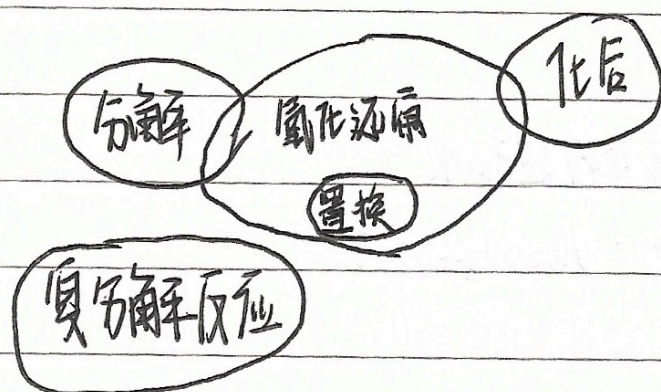 分解
氧化还原
化合
置换
复分解反应